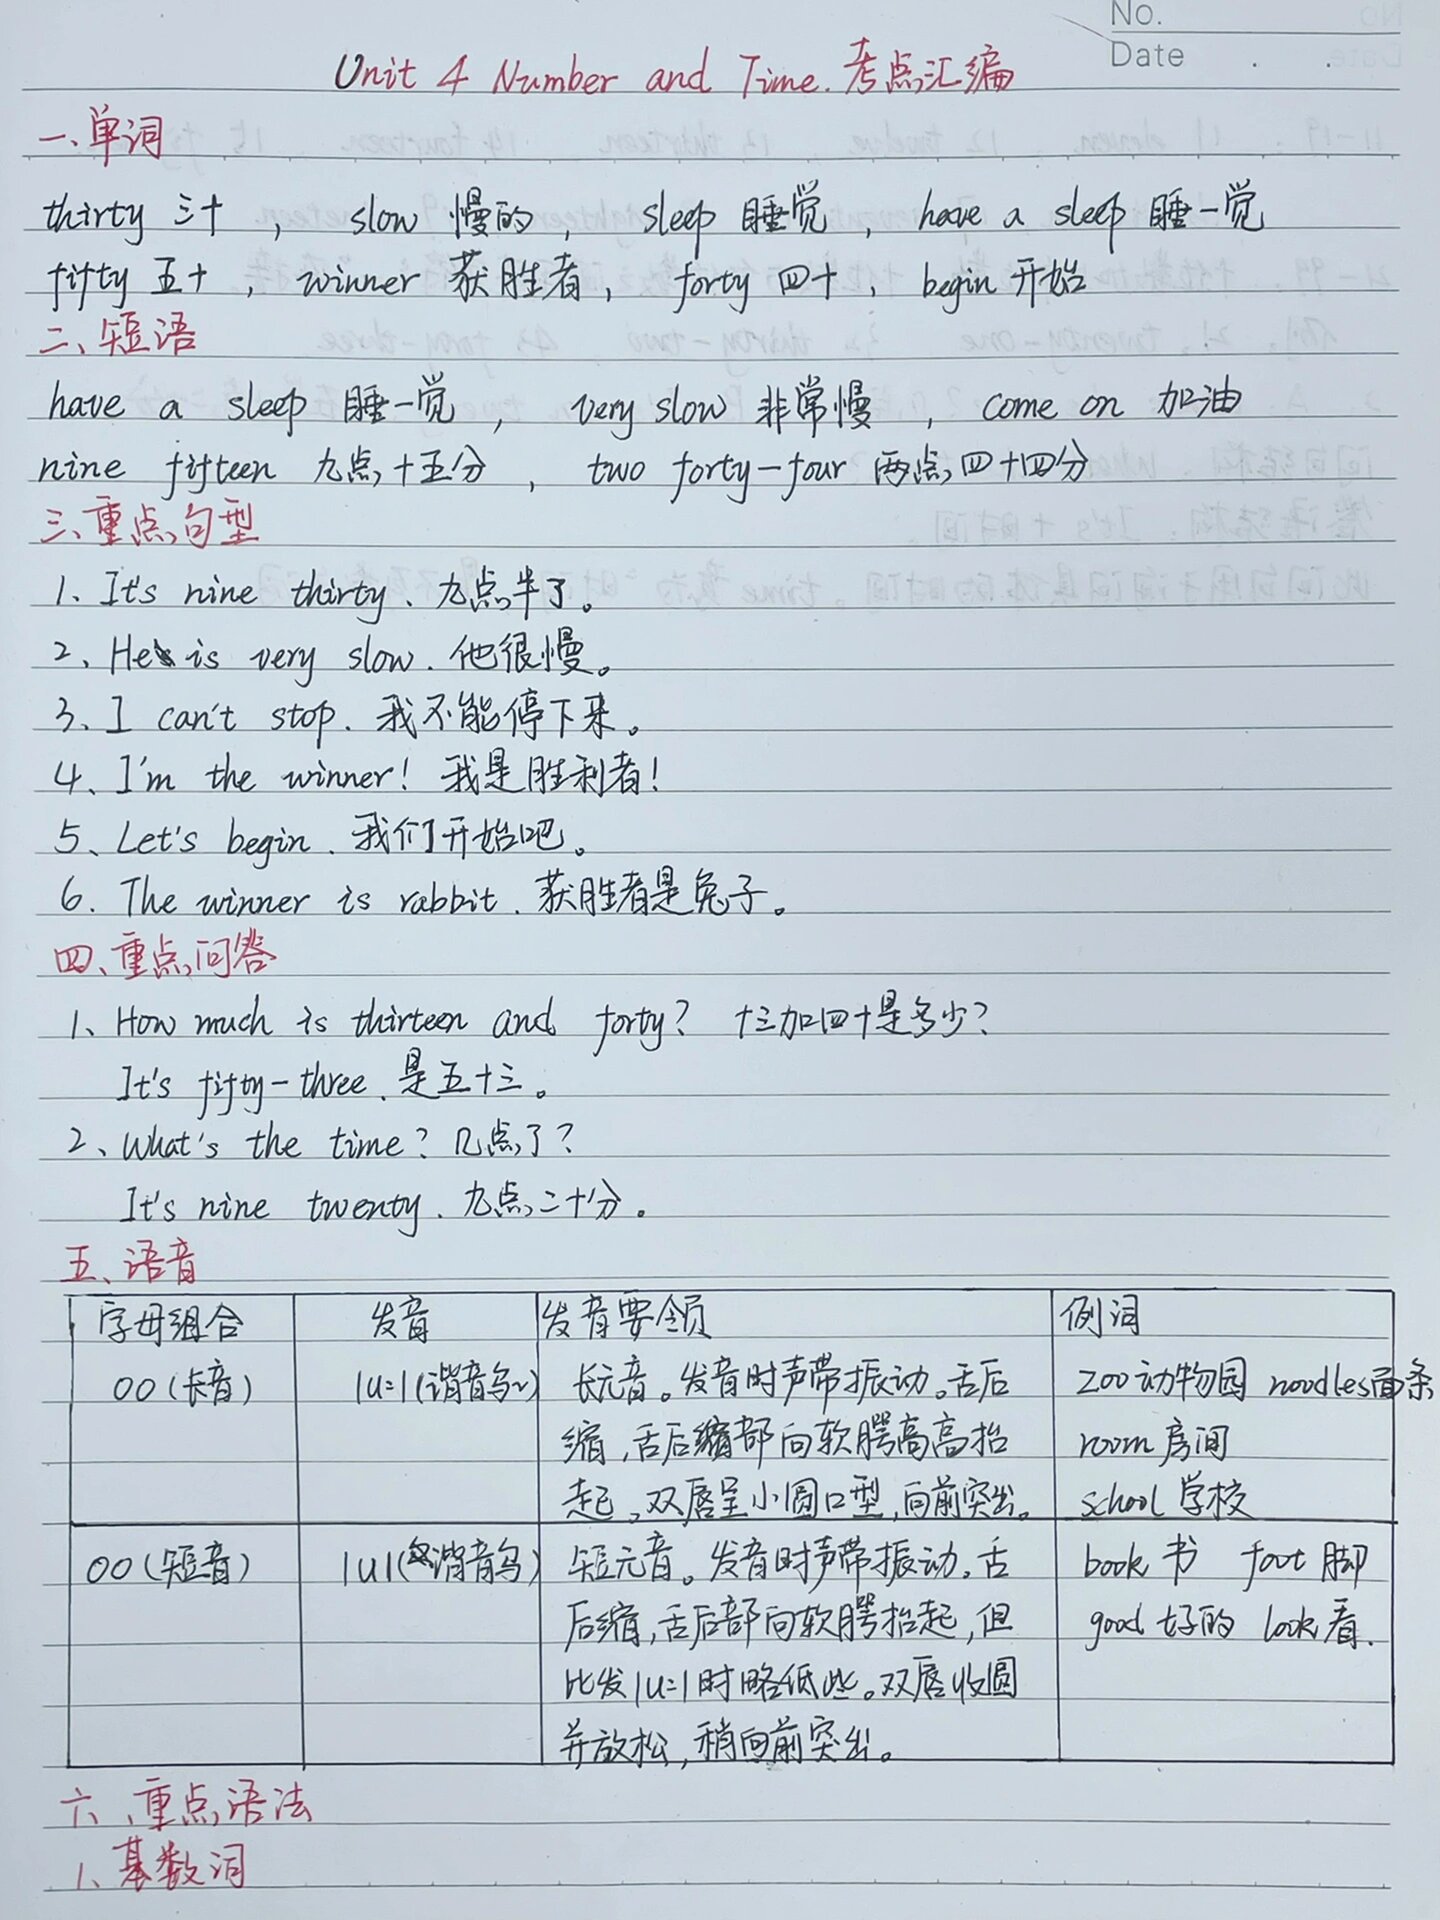 No.
Date . .
Unit 4 Number and Time. 考点汇编
一、单词
thirty 三十 , slow 慢的 , sleep 睡觉 , have a sleep 睡一觉
fifty 五十 , winner 获胜者 , forty 四十 , begin 开始
二、短语
have a sleep 睡一觉 , very slow 非常慢 , come on 加油
nine fifteen 九点十五分 , two forty-four 两点四十四分
三、重点句型
1、It's nine thirty. 九点半了。
2、He is very slow. 他很慢。
3、I can't stop. 我不能停下来。
4、I'm the winner! 我是胜利者!
5、Let's begin. 我们开始吧。
6. The winner is rabbit. 获胜者是兔子。
四、重点问答
1、How much is thirteen and forty? 十三加四十是多少?
It's fifty-three. 是五十三。
2、What's the time? 几点了?
It's nine twenty. 九点二十分。
五、语音
字母组合 发音 发音要领 例词
oo(长音) |u:|(谐音乌~) 长元音。发音时声带振动。舌后 zoo动物园 noodles面条
缩,舌后缩部向软腭高高抬 room房间
起。双唇呈小圆口型,向前突出。 school 学校
oo(短音) |u|(谐音乌) 短元音。发音时声带振动。舌 book 书 foot 脚
后缩,舌后部向软腭抬起,但 good 好的 look 看.
比发|u:|时略低些。双唇收圆
并放松,稍向前突出。
六、重点语法
1、基数词